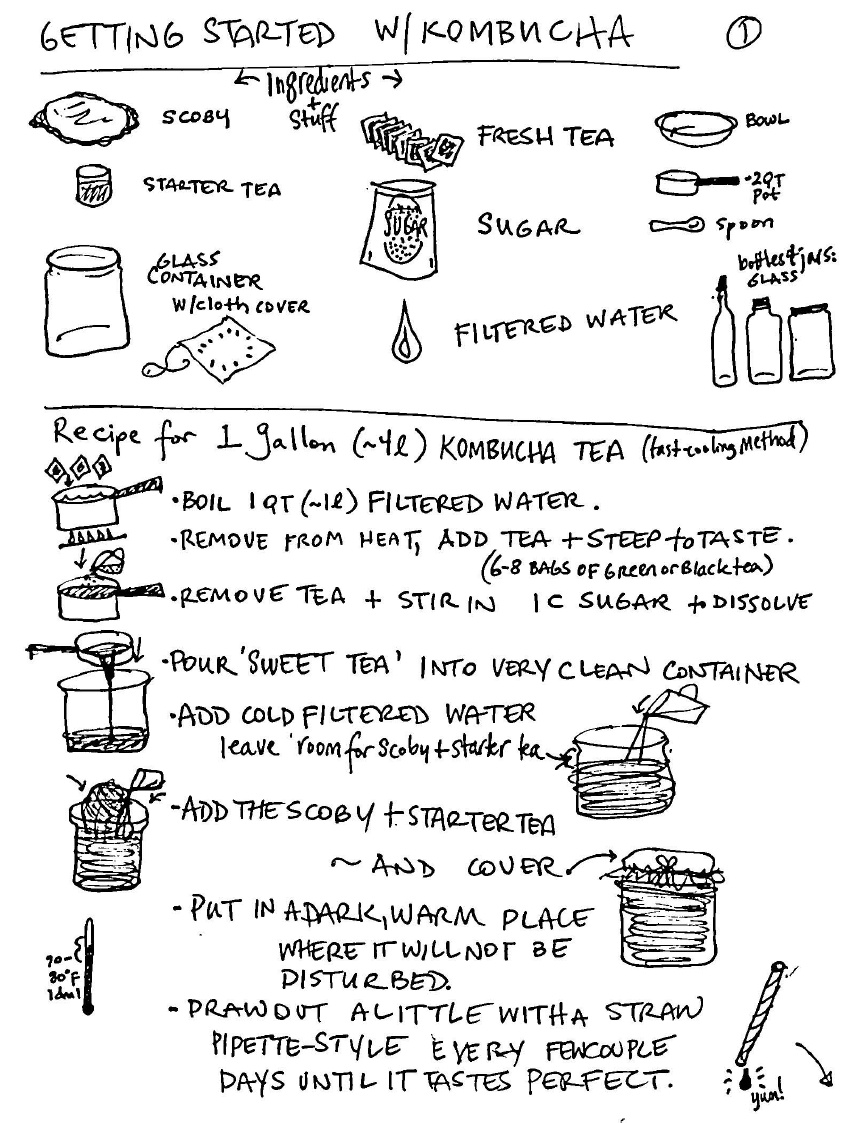 GETTING STARTED W/KOMBUCHA ①
← Ingredients →
+
Stuff
SCOBY
STARTER TEA
GLASS
CONTAINER
W/cloth COVER
FRESH TEA
SUGAR
SUGAR
FILTERED WATER
BOWL
~2QT
Pot
spoon
bottles & jars:
GLASS
Recipe for 1 gallon (~4l) KOMBUCHA TEA (fast-cooling Method)
• BOIL 1 QT (~1l) FILTERED WATER.
• REMOVE FROM HEAT, ADD TEA + STEEP to TASTE.
(6-8 BAGS OF Green or Black tea)
• REMOVE TEA + STIR IN 1 C SUGAR to DISSOLVE
• POUR 'SWEET TEA' INTO VERY CLEAN CONTAINER
• ADD COLD FILTERED WATER
leave room for Scoby + starter tea
- ADD THE SCOBY + STARTER TEA
~ AND COVER
- PUT IN A DARK, WARM PLACE
WHERE IT WILL NOT BE
DISTURBED.
70-
80°F
- DRAW OUT A LITTLE WITH A STRAW
PIPETTE-STYLE EVERY FEW COUPLE
DAYS UNTIL IT TASTES PERFECT.
yum!